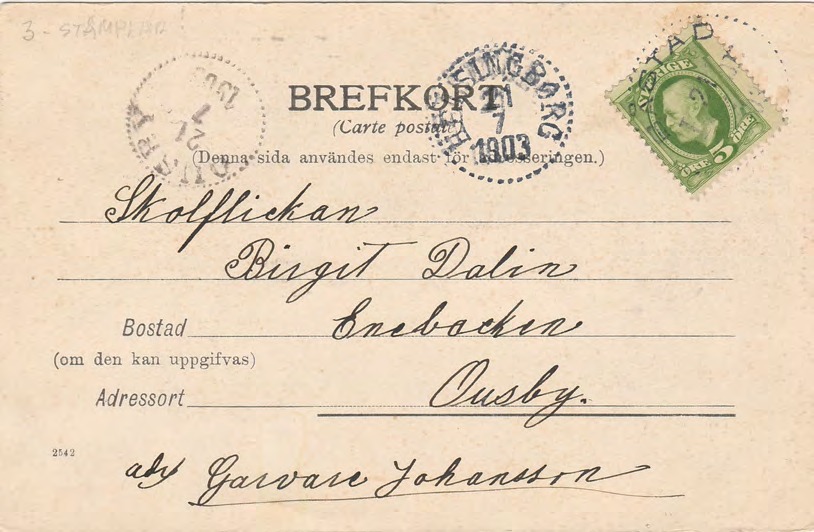 3 - STÄMPLAR
BREFKORT
(Carte postale)
(Denna sida användes endast för adresseringen.)
HELSINGBORG
21
7
1903
OUSBY
21
7
1903
YSTAD
SVERIGE
ÖRE 5 ÖRE
Skolflickan
Birgit Dalin
Bostad Enebacken
(om den kan uppgifvas)
Adressort Ousby.
2542
adr Garvare Johansson